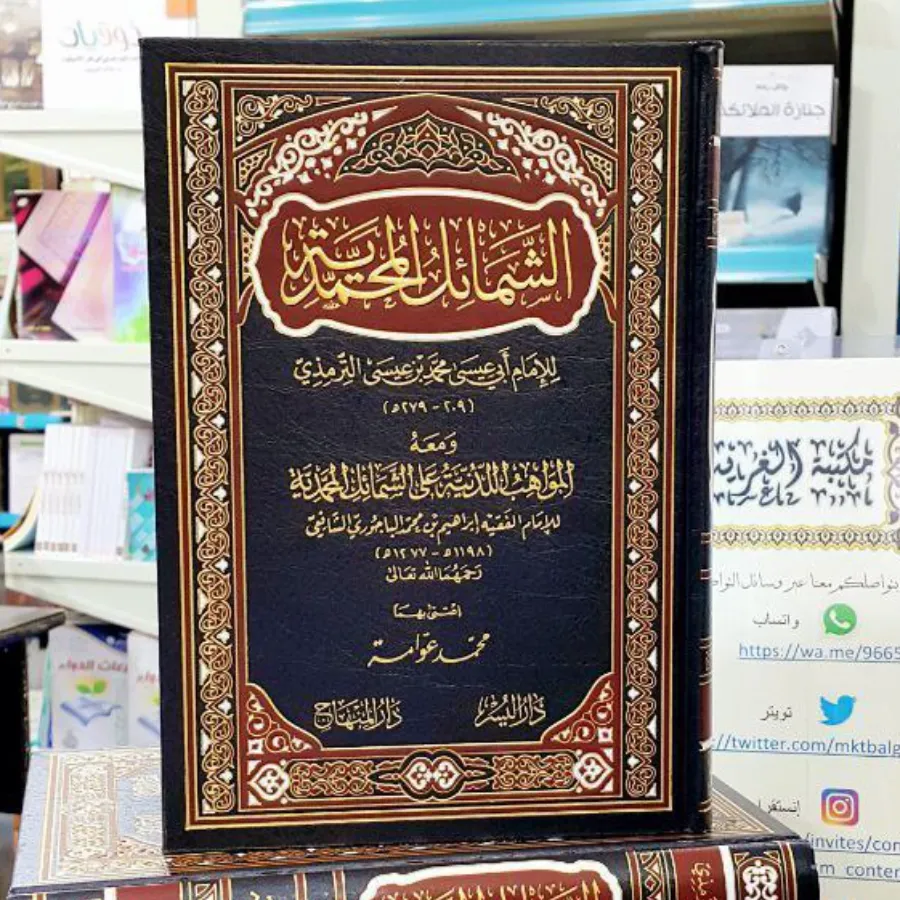 الشَّمَائِلُ المُحَمَّدِيَّة
لِلإمَام أَبي عِيسَى مُحَمَّد بْن عِيسَى التِّرمِذِيّ
(٢٠٩ - ٢٧٩هـ)
وَمَعَهُ
المَوَاهِبُ اللَّدُنِّيَّة عَلَى الشَّمَائِل المُحَمَّدِيَّة
للإمَام الفَقيه إبرَاهِيم بْن مُحَمَّد البَاجُوري الشَّافِعيّ
(١١٩٨هـ - ١٢٧٧هـ)
رَحِمَهُمَا الله تَعَالى
اعْتَنى بِهِمَا
محمّد عَوّامة
دَارُ اليُسْر
دَارُ المِنْهَاج
جنازة الملائكة
مكتبة الغرباء
واتساب
https://wa.me/9665
تويتر
//twitter.com/mktbalg
إنستقرا
/invites/con
m_conter